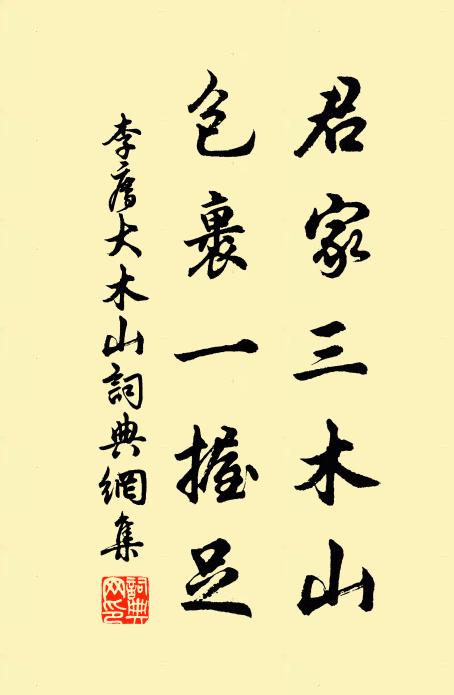 君家三木山
包裹一握足
李廌大木山詞典網集
詞典
网印